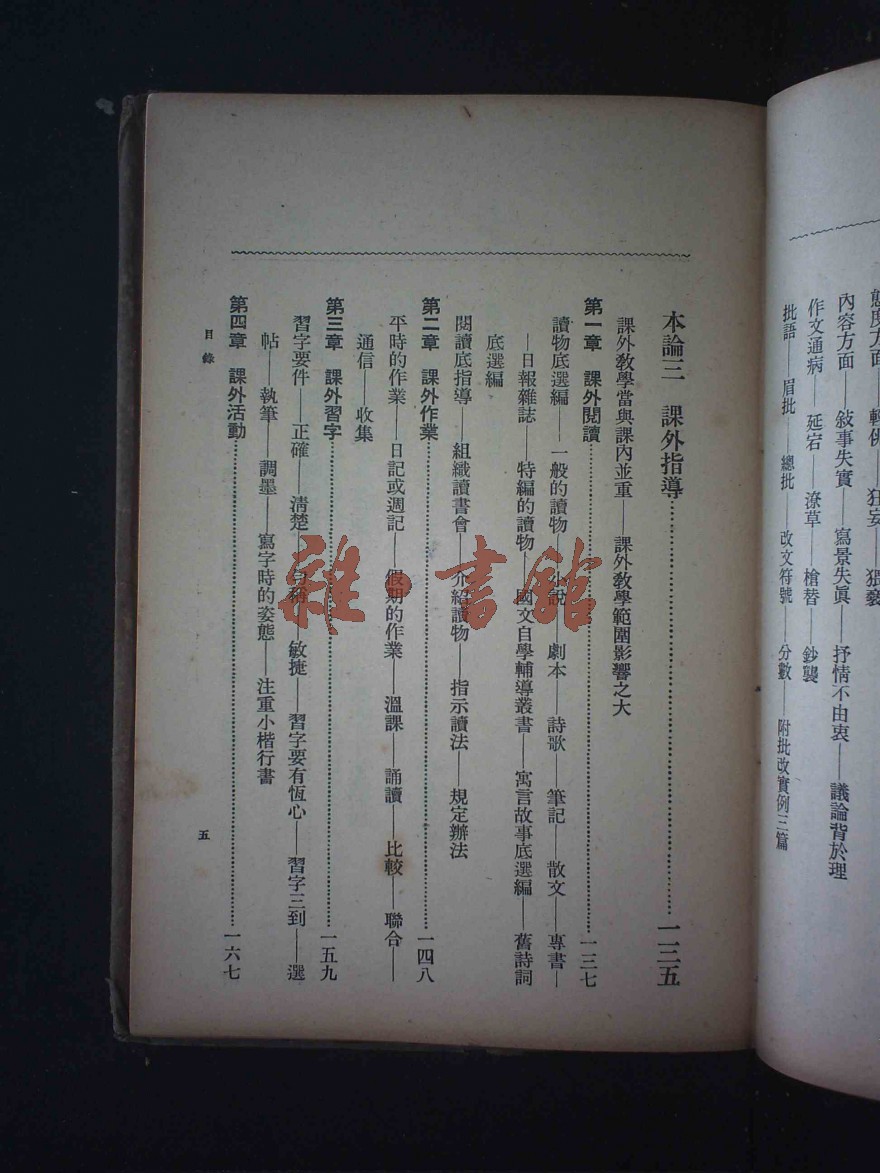 態度方面——輕佻——狂妄——猥褻
內容方面——敍事失實——寫景失眞——抒情不由衷——議論背於理
作文通病——延宕——潦草——槍替——鈔襲
批語——眉批——總批——改文符號——分數——附批改實例三篇
本論三　課外指導……一三五
課外敎學當與課內並重——課外敎學範圍影響之大
第一章　課外閱讀……一三七
讀物底選編——一般的讀物——小說——劇本——詩歌——筆記——散文——專書—
—日報雜誌——特編的讀物——國文自學輔導叢書——寓言故事底選編——舊詩詞
底選編
閱讀底指導——組織讀書會——介紹讀物——指示讀法——規定辦法
第二章　課外作業……一四八
平時的作業——日記或週記——假期的作業——溫課——誦讀——比較——聯合——
通信——收集
第三章　課外習字……一五九
習字要件——正確——淸楚——勻稱——敏捷——習字要有恆心——習字三到——選
帖——執筆——調墨——寫字時的姿態——注重小楷行書
第四章　課外活動……一六七
目錄
五
雜·書館